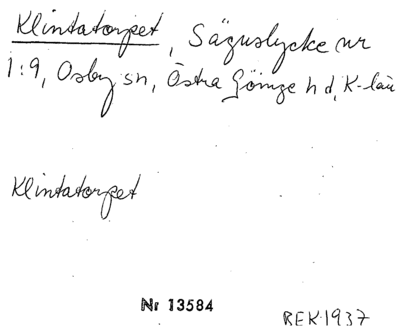 Klintatorpet, Säguslycke nr
1:9, Osby sn, Östra Göinge hd, K-län
Klintatorpet
Nr 13584
REK 1937